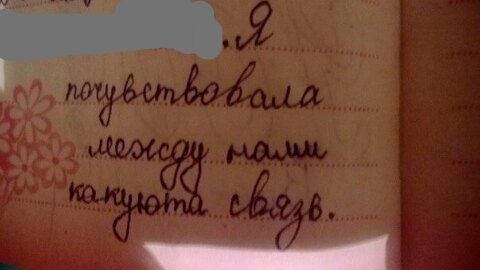 . Я
почувствовала
между нами
какуюта связь.